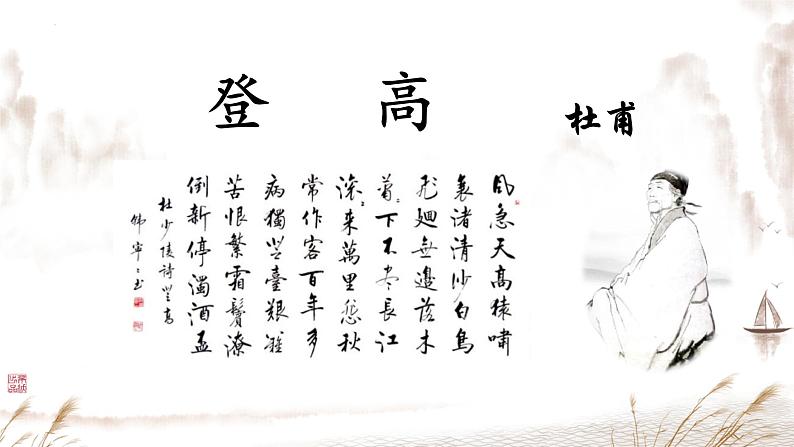 登 高
杜甫
风急天高猿嘯
哀渚清沙白鸟
飛廻無邊落木
蕭〻下不尽長江
滚〻来萬里悲秋
常作客百年多
病獨登臺艱難
苦恨繁霜鬢潦
倒新停濁酒盃
杜少陵詩登高
韩寧〻书